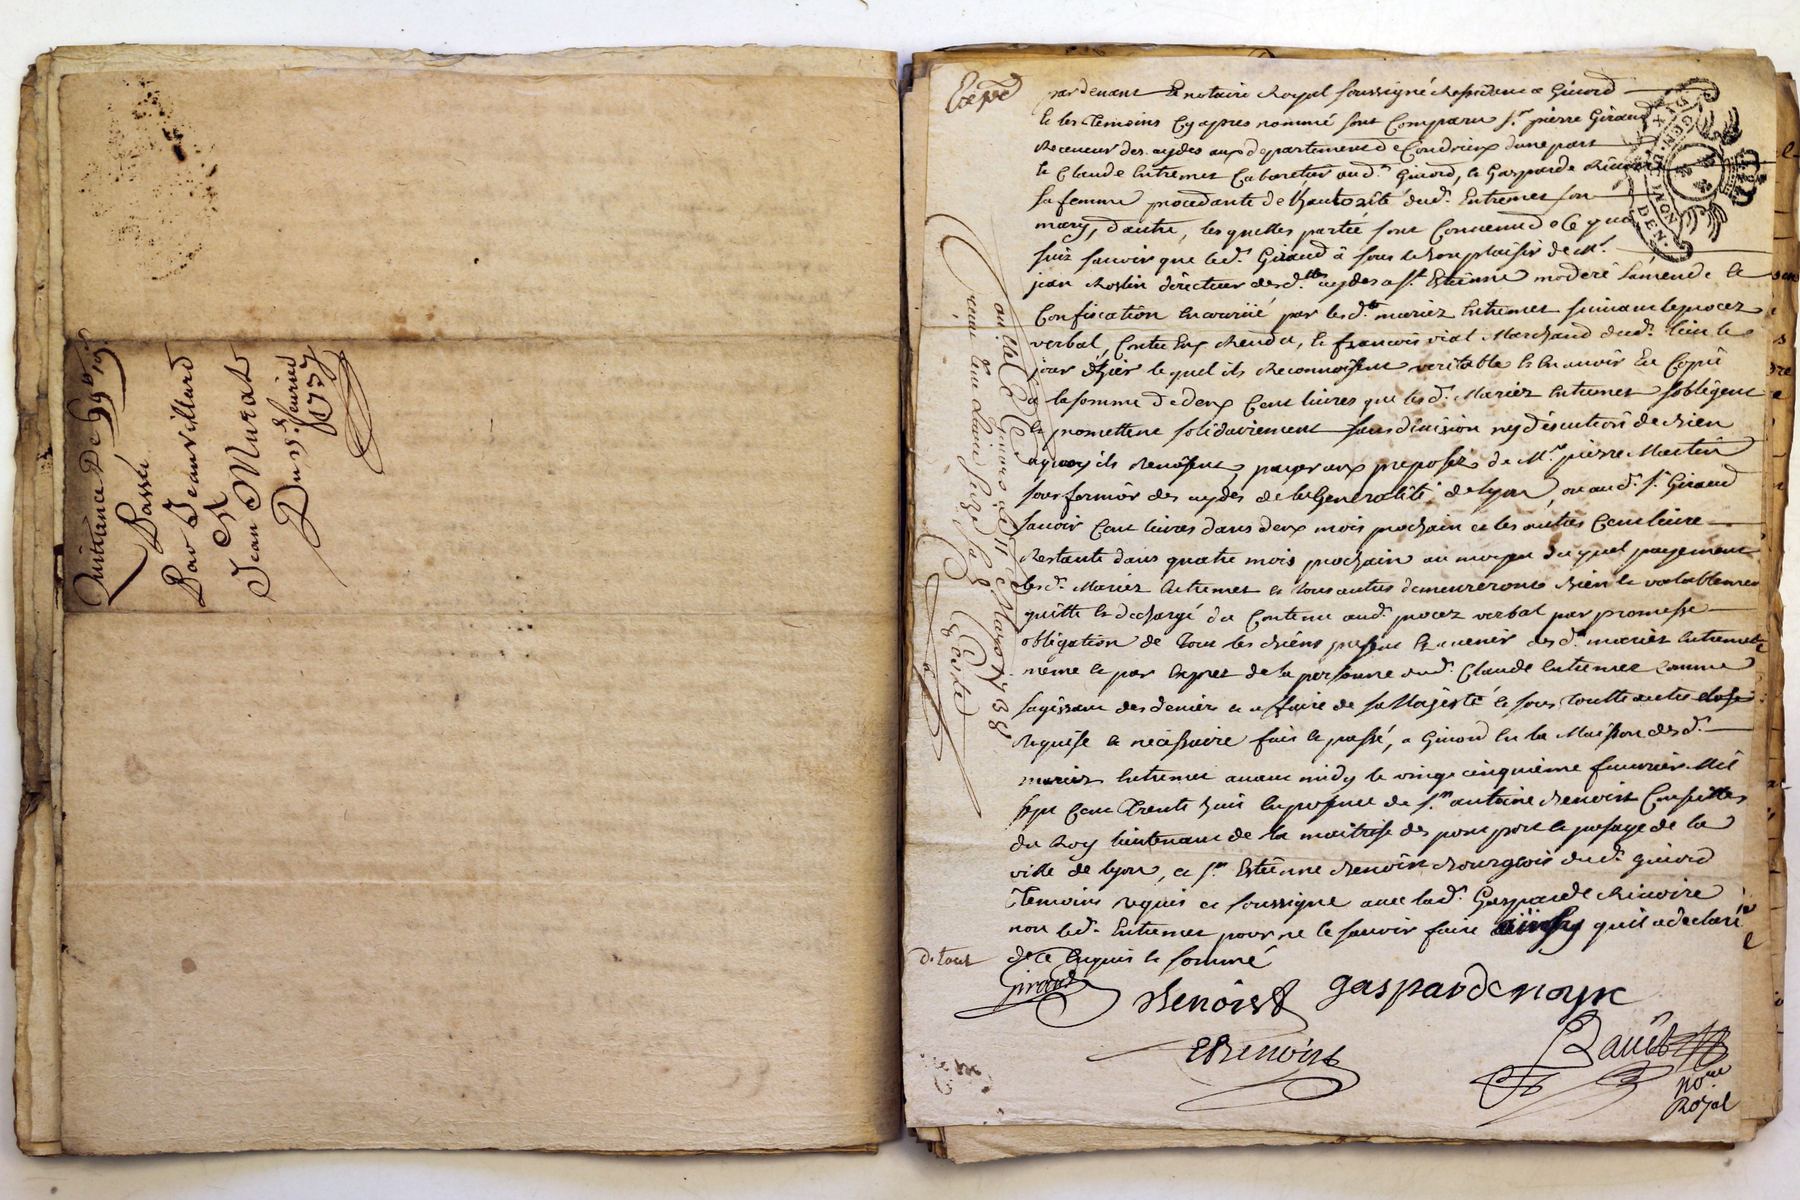 Quittance De 99 lb 19 s
Passé
Par Jean villard
A
Jean Murat
Du 15 feurier
1737
Expéd
pardeuant Le notaire Royal soussigné Residant a Giuord
& les temoins Cy apres nommé sont Comparu Sr. pierre Giraud
Receueur des aydes aux departement de Condrieux dune part
& Claude Entremet Cabaretier aud. Giuord, & Gasparde Riuoire
sa femme procedante de Lautorité dud. Entremet son
mary, dautre, lesquelles partie sont Conuenu de Ce que
suit sauoir que led. Giraud a sous le bon plaisir de Mr.
jean Roslin directeur desd. aydes a St. Estienne moderé Lamende &
Confiscation Encourüe par lesd. mariez Entremet suiuant le procez
verbal, Contre Eux Rendu, & francois vial Marchand dud. lieu le
jour d'hier lequel ils Reconnoissent veritable & En auoir Eu Copie
a la somme de deux Cent liures que lesd. Mariez Entremet s'obligent
& promettent solidairement sans diuision ny discution de bien
aquoy ils Renoncent, payer aux preposez de Mr. pierre Martin
sous fermier des aydes de la Generalité de Lyon, ou aud. Sr. Giraud
sauoir Cent liures dans deux mois prochain et les autres Cent liure
Restante dans quatre mois prochain au moyen du quel payement
lesd. Mariez Entremet et tous autres demeureront bien & valablement
quitte & dechargé du Contenu aud. procez verbal par promesse
obligation de tous les biens present & auenir desd. mariez Entremet
même & par Expres de la personne dud. Claude Entremet comme
sagissant des denier et affaire de sa Majesté & sous toutte autre close
Requise & necessaire fait & passé, a Giuord En la Maison desd.
mariez Entremet auant midy le vingt cinquième feurier Mil
sept Cent trente huit En presence de Sr. antoine Benoist Conseiller
du Roy lieutenant de la maitrise des pont port & passage de la
ville de Lyon, et Sr. Estienne Benoist Bourgeois dud. giuord
temoins requis et soussigne auec lad. Gasparde Riuoire
non led. Entremet pour ne le sauoir faire ainsy quil a declaré
de ce Enquis & sommé
Giraud
Benoist
gasparde royre
EBenoist
Bauet
No.re
Royal
Controllé a Giuors le 11 Mars 1738
DEN.